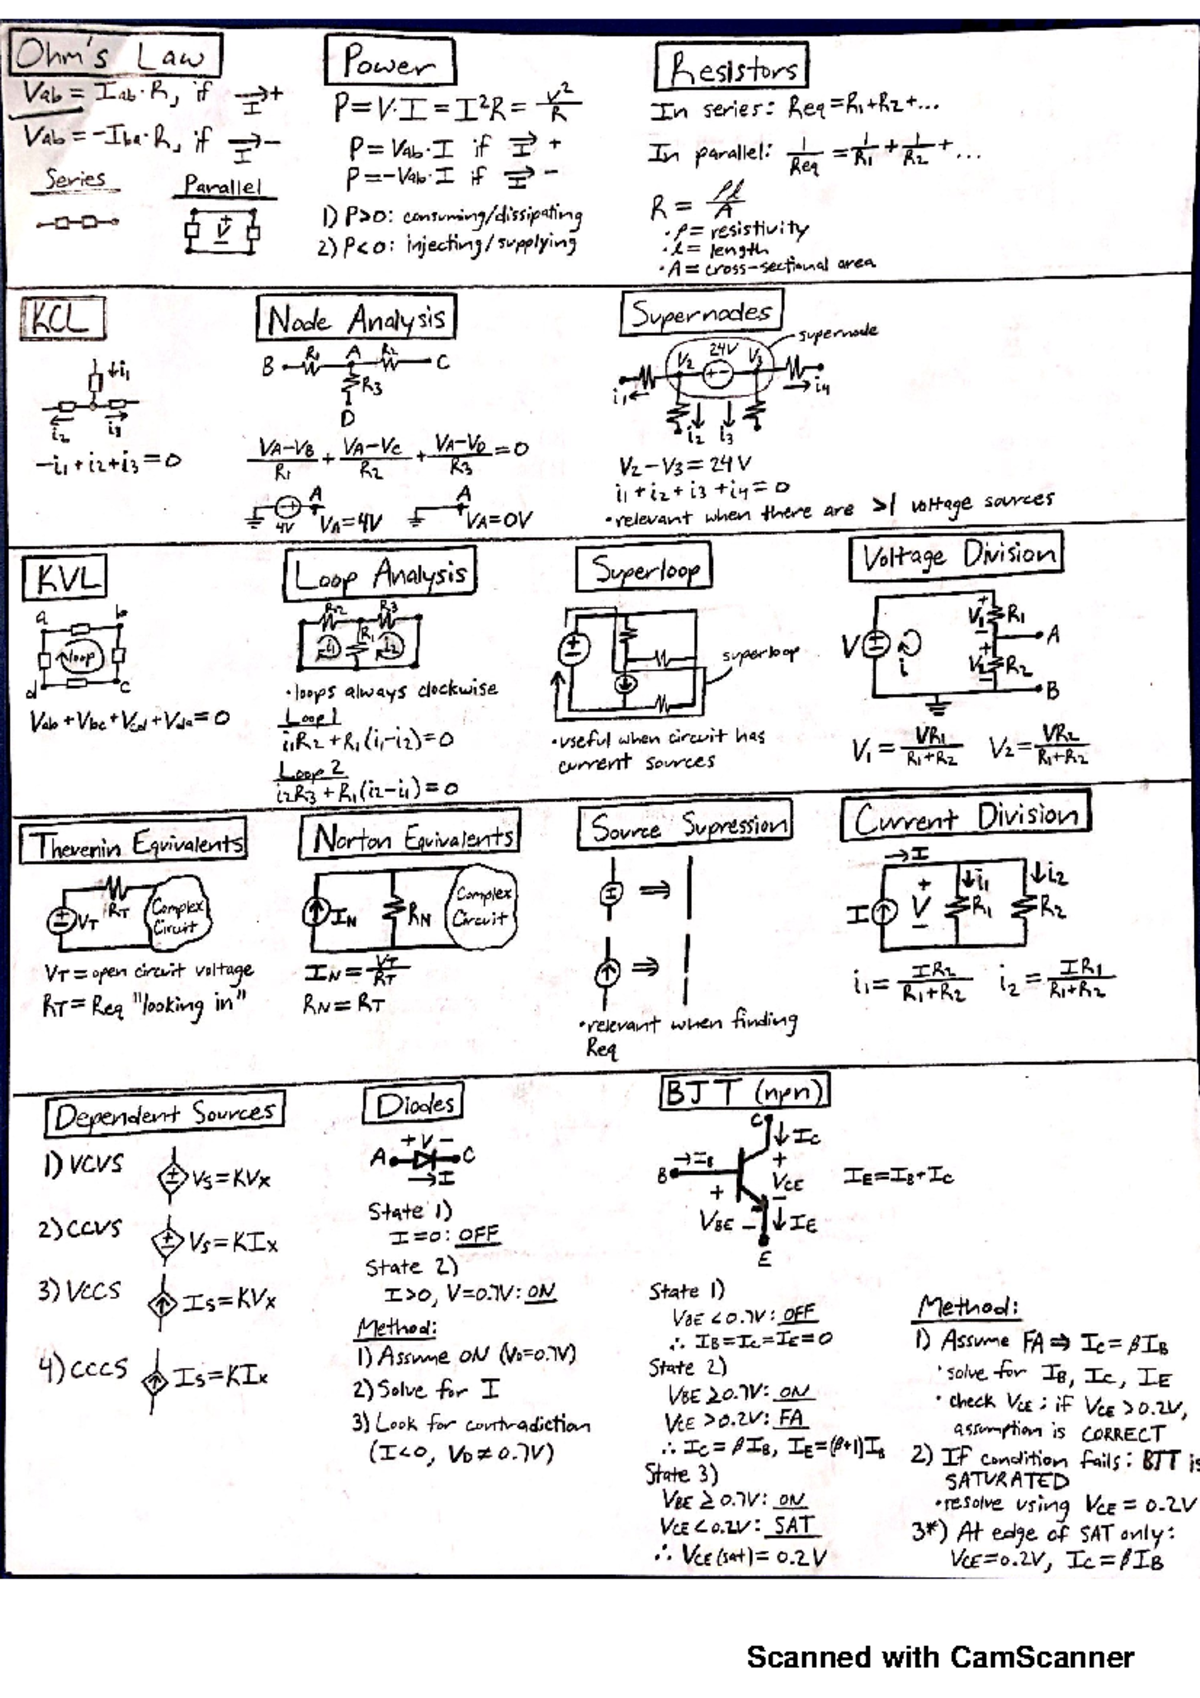 Ohm's Law
Vab = Iab·R, if ⇉ I +
Vab = -Iba·R, if ⇉ I -
Series
Parallel
V
+
-
Power
P = V·I = I²R = V²/R
P = Vab·I if ⇉ I +
P = -Vab·I if ⇉ I -
1) P>0: consuming/dissipating
2) P<0: injecting/supplying
Resistors
In series: Req = R1+R2+...
In parallel: 1/Req = 1/R1 + 1/R2 + ...
R = ρl/A
·ρ = resistivity
·l = length
·A = cross-sectional area
KCL
↓i1
i2
i3
-i1+i2+i3=0
Node Analysis
B R1 A R2 C
R3
D
VA-VB/R1 + VA-VC/R2 + VA-VD/R3 = 0
A
4V
VA=4V
A
VA=0V
Supernodes
supernode
V2 24V V3
+ -
i1
i2
i3
i4
V2-V3=24V
i1+i2+i3+i4=0
·relevant when there are >1 voltage sources
KVL
a b
loop
d c
Vab+Vbc+Vcd+Vda=0
Loop Analysis
R2 R3
i1 R1 i2
·loops always clockwise
Loop 1
i1R2+R1(i1-i2)=0
Loop 2
i2R3+R1(i2-i1)=0
Superloop
superloop
·useful when circuit has
current sources
Voltage Division
V
i
+ V1 - R1
A
+ V2 - R2
B
V1 = VR1/R1+R2 V2 = VR2/R1+R2
Thevenin Equivalents
VT
RT
Complex
Circuit
VT = open circuit voltage
RT = Req "looking in"
Norton Equivalents
IN
RN
Complex
Circuit
IN = VT/RT
RN = RT
Source Supression
I ⇒
⇒
·relevant when finding
Req
Current Division
→I
I
+ V -
↓i1
R1
↓i2
R2
i1 = IR2/R1+R2 i2 = IR1/R1+R2
Dependent Sources
1) VCVS Vs=KVx
2) CCVS Vs=KIx
3) VCCS Is=KVx
4) CCCS Is=KIx
Diodes
+V-
A C
→I
State 1)
I=0: OFF
State 2)
I>0, V=0.7V: ON
Method:
1) Assume ON (VD=0.7V)
2) Solve for I
3) Look for contradiction
(I<0, VD≠0.7V)
BJT (npn)
C
↓IC
→IB
B
+
VCE
-
+
VBE -
↓IE
E
IE=IB+IC
State 1)
VBE<0.7V: OFF
∴ IB=IC=IE=0
State 2)
VBE≥0.7V: ON
VCE>0.2V: FA
∴ IC=βIB, IE=(β+1)IB
State 3)
VBE≥0.7V: ON
VCE<0.2V: SAT
∴ VCE(sat)=0.2V
Method:
1) Assume FA ⇒ IC=βIB
·solve for IB, IC, IE
·check VCE; if VCE>0.2V,
assumption is CORRECT
2) If condition fails: BJT is
SATURATED
·resolve using VCE=0.2V
3*) At edge of SAT only:
VCE=0.2V, IC=βIB
Scanned with CamScanner